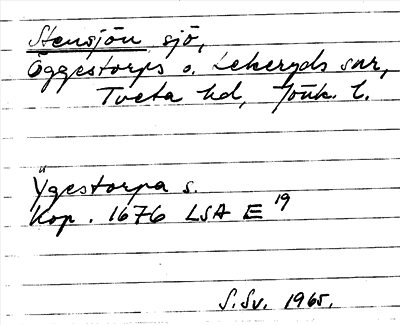 Stensjön sjö,
Öggestorps o. Lekeryds snr,
Tveta hd, Jönk. l.
Ÿgestorpa s.
Kop. 1676 LSA E 19
S.Sv. 1965.